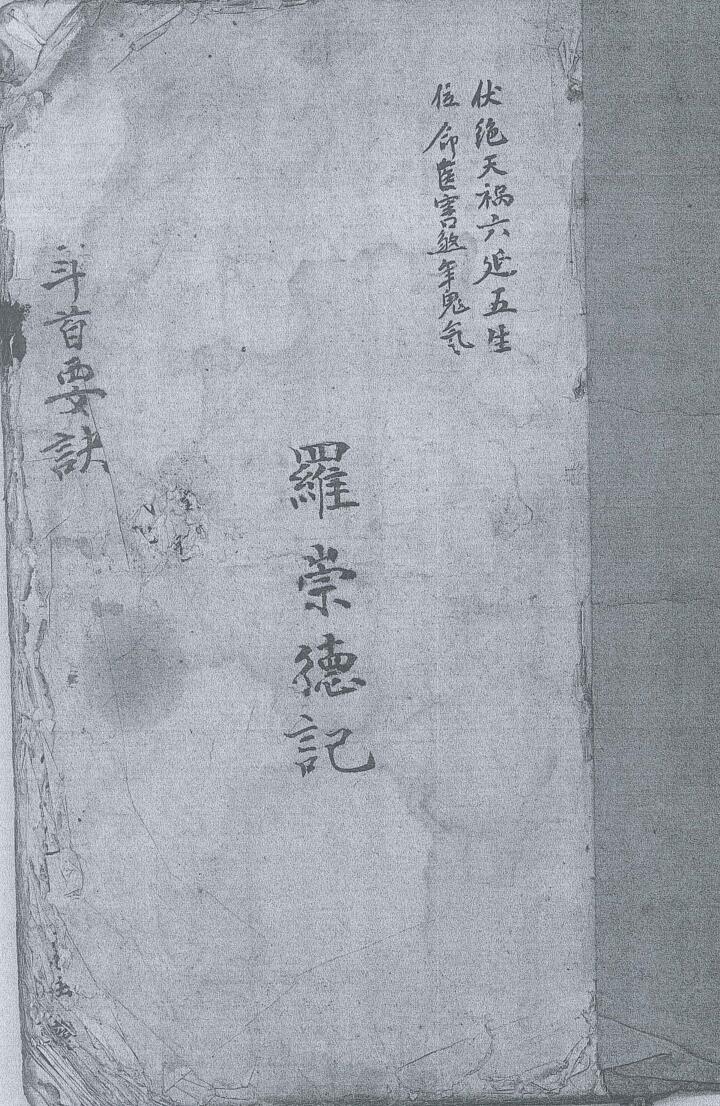 伏绝天祸六延五生
位命医害煞年鬼氣
羅崇德記
斗首要訣